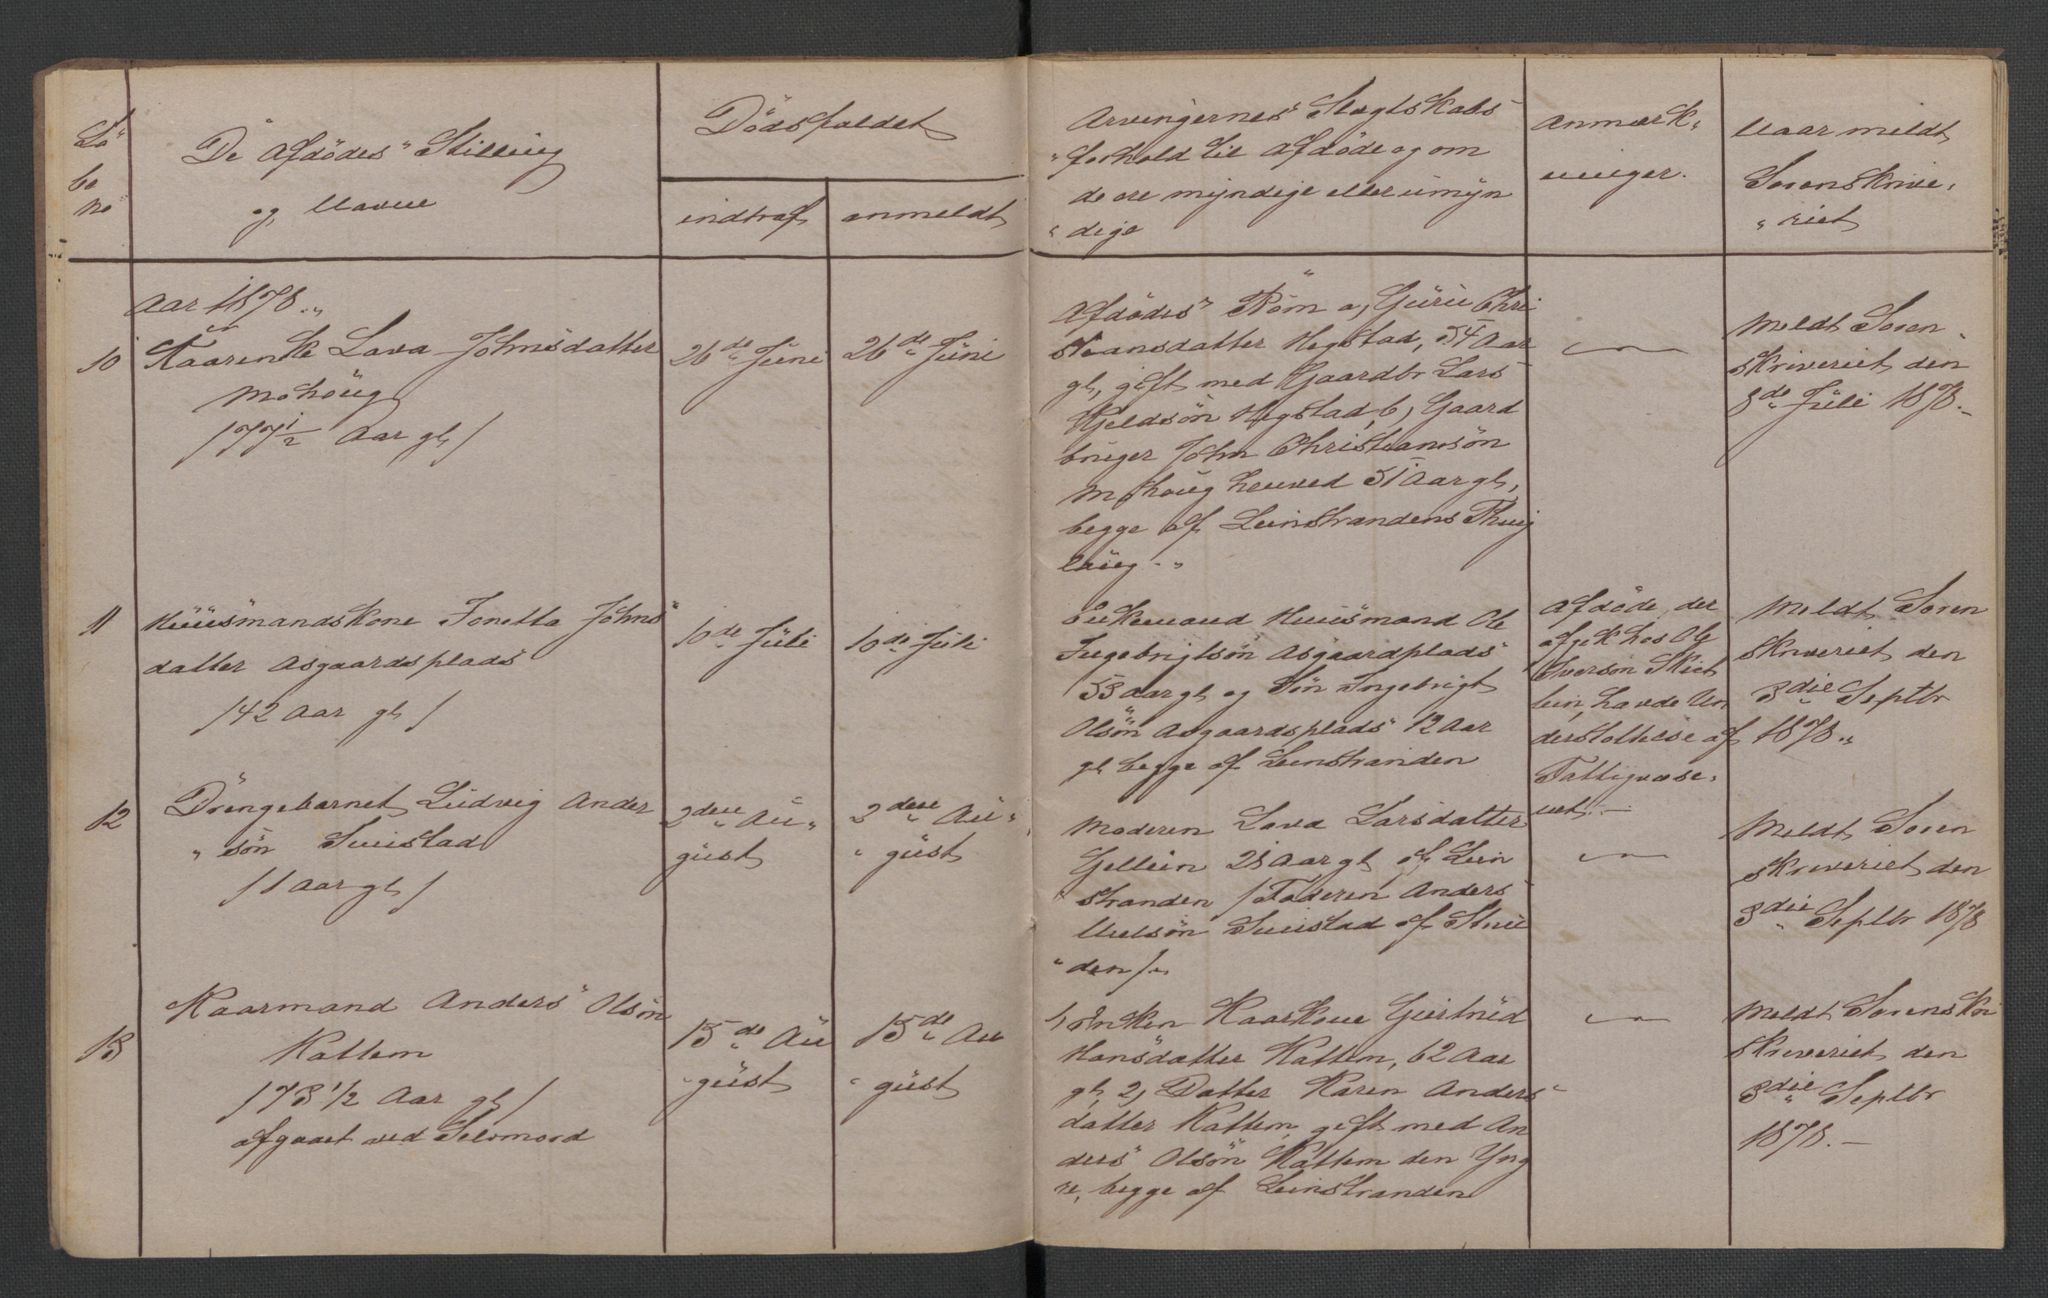 Lö
be
No
De Afdödes Stilling
og Navne
Dödsfaldet
indtraf
anmeldt
Arvingernes Slægtskabs
forhold til Afdöde og om
de ere myndige eller umyn
dige
Anmærk-
ninger.
Naar meldt
Sorenskrive-
riet
Aar 1878.
10
Kaarenke Lava Johnsdatter
Mohoug
/77½ Aar gl/
26de Juni
26de Juni
Afdödes Börn a, Guru Chri
stiansdatter Hegstad, 54 Aar
gl, gift med Gaardbr Lars
Kjeldsön Hegstad, b, Gaard
bruger John Christiansön
Mohoug 51 Aar gl,
begge af Leinstrandens Thing
laug.
Meldt Soren
skriveriet den
3de Juli 1878.
11
Huusmandskone Jonetta Johns
datter Asgaardsplads
/42 Aar gl/
10de Juli
10de Juli
Enkemand Huusmand Ole
Ingebrigtsön Asgaardplads
53 aar gl og Sön Ingebrigt
Olsön Asgaardsplads 12 Aar
gl begge af Leinstranden
Afdöde, der
afgik hos Ole
Iverson
havde Un
derstöttelse af
Fattigvæse-
net.
Meldt Soren
skriveriet den
3die Septbr
1878.
12
Drengebarnet Ludvig Ander
sön
/1 Aar gl/
2den Au-
gust
2den Au-
gust
Moderen Lava Larsdatter
28 Aar gl, af Lein
stranden /Faderen Anders
Nielsön af
den/.
Meldt Soren
skriveriet den
3die Septbr 1878
13
Kaarmand Anders Olsön
Kattem
/73 1/2 Aar gl/
afgaaet ved Selvmord
15de Au
gust
15de Au
gust
1, Enken Kaarkone Gjertrud
Hansdatter Kattem, 62 Aar
gl, 2, Datter Karen Anders
datter Kattem, gift med An
ders Olsön Kattem den Yng
re, begge af Leinstranden
Meldt Sorenskri
skriveriet den
3die Septbr
1878.